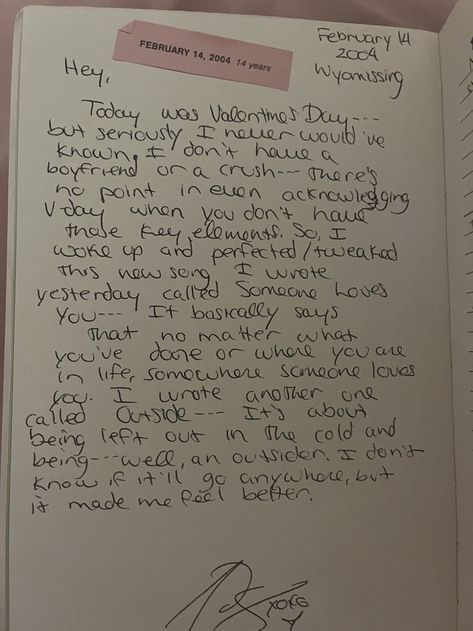 FEBRUARY 14, 2004 14 years
February 14
2004
Wyomissing
Hey,
Today was Valentine's Day---
but seriously I never would've
known. I don't have a
boyfriend or a crush--- There's
no point in even acknowledging
V-day when you don't have
those key elements. So, I
woke up and perfected/tweaked
this new song I wrote
yesterday called Someone Loves
You--- It basically says
that no matter what
you've done or where you are
in life, somewhere someone loves
you. I wrote another one
called Outside--- It's about
being left out in the cold and
being---well, an outsider. I don't
know if it'll go anywhere, but
it made me feel better.
XOXO